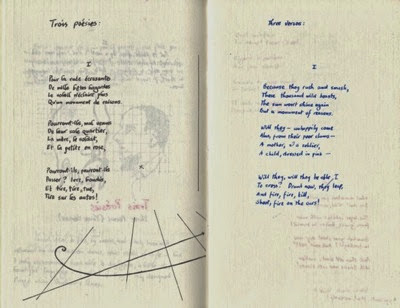 Trois poésies:
I
Pour la ruée écrasante
De mille bêtes hagardes
Le soleil n'éclaire plus
Qu'un monument de raisons.
Pourront-ils, mal venus
De leur sale quartier,
La mère, le soldat,
Et la petite en rose,
Pourront-ils, pourront-ils
Passer? Ivre, bondis,
Et tire, tire, tue,
Tire sur les autos!
Three verses:
I
Because they rush and crush,
These thousand wild beasts,
The sun won't shine again
But a monument of reasons.
Will they — unhappily come
from their poor slums —
A mother, a soldier,
A child, dressed in pink —
Will they, will they be able,
To cross? Drunk now, they leap,
And fire, fire, kill,
Shoot, fire on the cars!